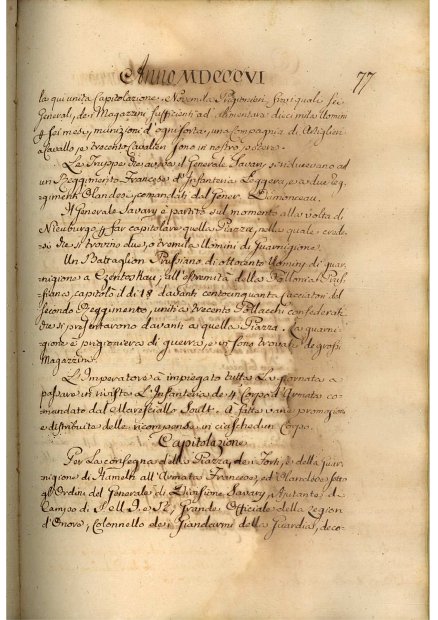 Anno MDCCCVI 77
la qui unita Capitolazione. Novemila Prigionieri, fra i quali sei
Generali, dei Magazzini sufficienti ad alimentare diecimila Uomini
p sei mesi, munizioni d'ogni sorta, una Compagnia di Artiglieri
a Cavallo, e trecento Cavalieri sono in nostro potere.
Le Truppe che aveva il Generale Savary si riducevano ad
un Reggimento Francese d'Infanteria Leggera, e a due Reg-
gimenti Olandesi, comandati dal Gener. Dumonceau.
Il Generale Savary è partito sul momento alla volta di
Nieuburgo p far capitolare quella Piazza, nella quale crede-
si che vi trovino due, o tremila Uomini di Guarnigione.
Un Battaglion Prussiano di ottocento Uomini di guar-
nigione a Czentoskau, all'estremità della Pollonia Prus-
siana, capitolò il dì 18 davanti centocinquanta Cacciatori del
secondo Reggimento, uniti a trecento Pollacchi confederati
che si presentavano davanti a quella Piazza. La guarni-
gione è prigioniera di guerra, e vi sono trovati de' grossi
Magazzini.
L'Imperatore à impiegato tutta la giornata a
passare in rivista l'Infanteria del 4 Corpo d'Armata co-
mandato dal Maresciallo Soult. A fatte varie promozioni
e distribuite delle ricompense in ciaschedun Corpo.
Capitolazione
Per la consegna della Piazza, dei Forti, e della guar-
nigione di Hameln all'Armata Francese, ed Olandese sotto
gl'Ordini del Generale di Divisione Savary, Aiutante di
Campo di S. M. I. e R., Grande Officiale della Legion
d'Onore, Colonnello dei Giandarmi della Guardia, deco-